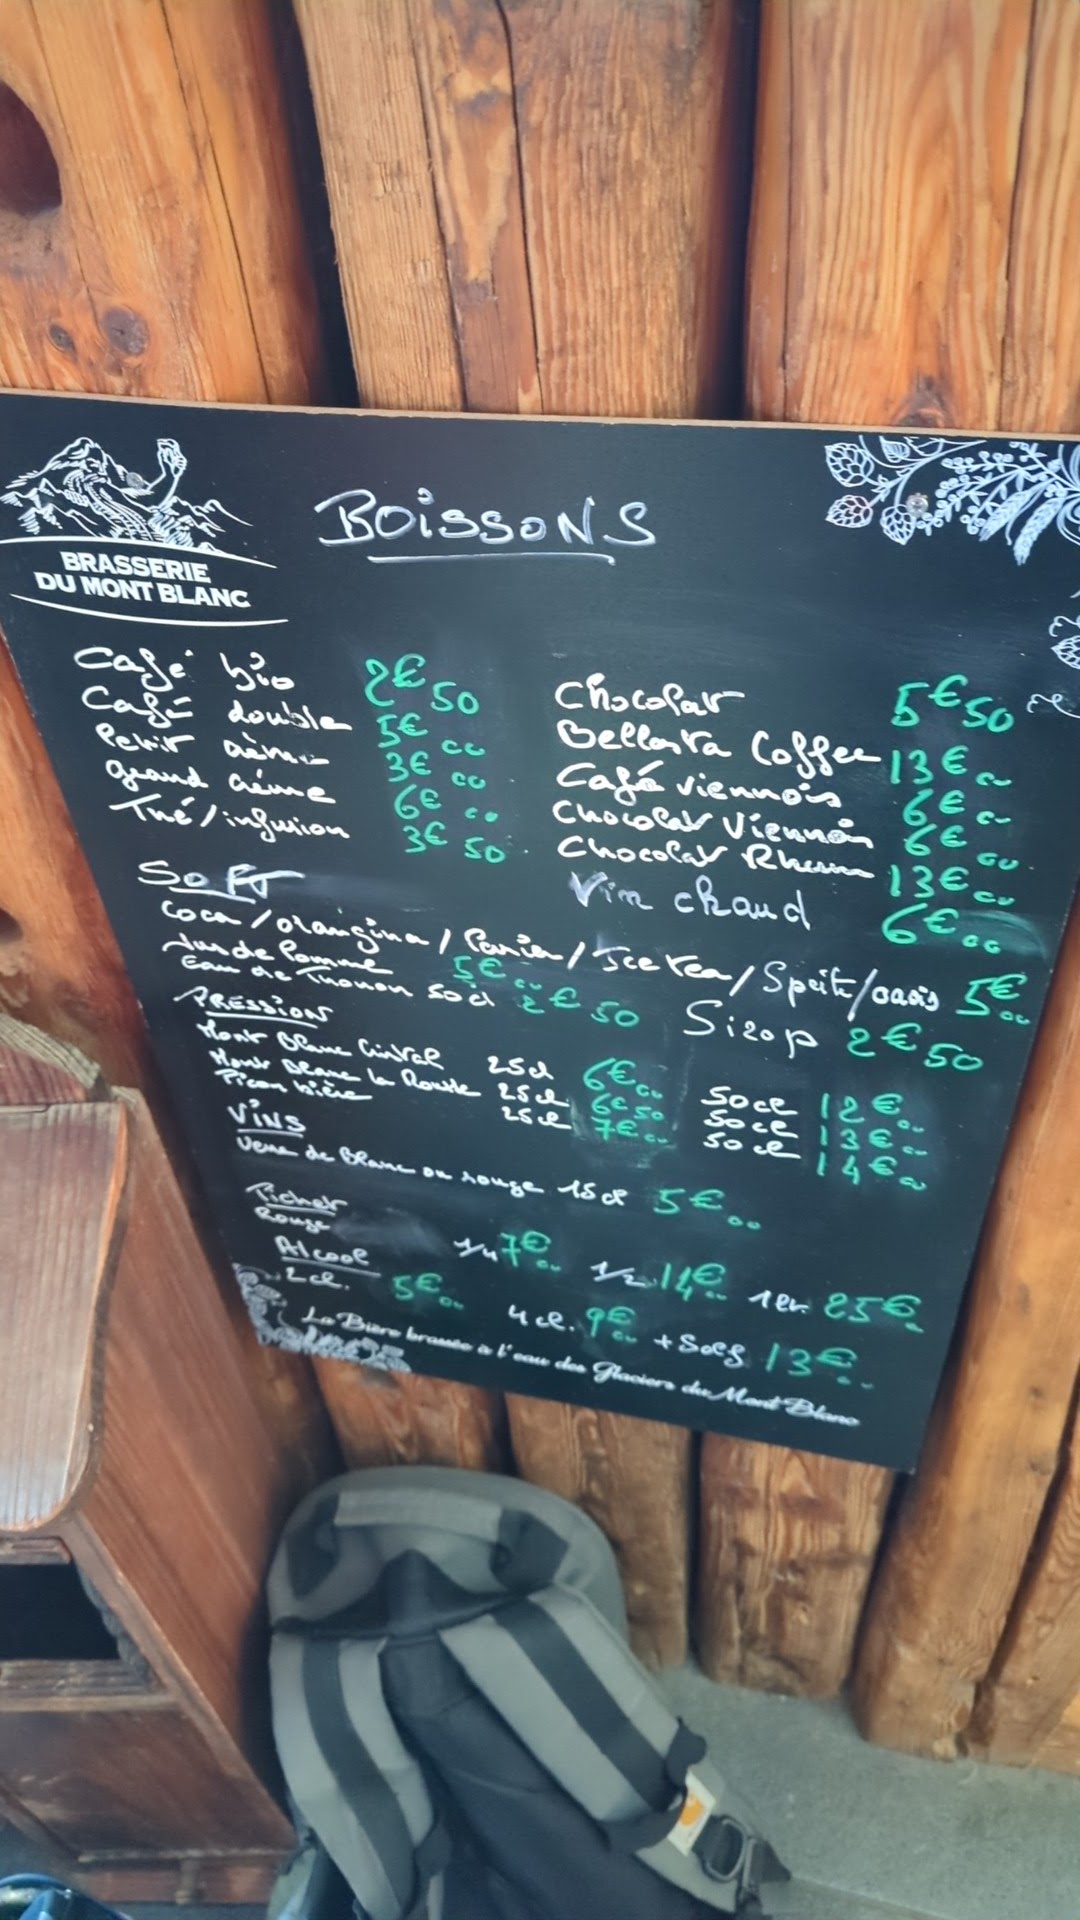 BRASSERIE
DU MONT BLANC
BOiSSONS
Café bio 2€50
Café double 5€00
Petit crème 3€00
grand crème 6€00
Thé/infusion 3€50
Chocolat 5€50
Coffee 13€00
Café viennois 6€00
Chocolat Viennois 6€00
Chocolat Rhum 13€00
Vin chaud 6€00
Soft
Coca/orangina/ /Ice tea/Sprite/oasis 5€00
Jus de Pomme 5€00
Eau de Thonon 50cl 2€50
Sirop 2€50
PRESSION
Mont Blanc 25cl 6€00 50cl 12€00
Mont Blanc la Rousse 25cl 6€50 50cl 13€00
Picon bière 25cl 7€00 50cl 14€00
ViNS
Verre de Blanc ou rouge 15cl 5€00
Pichet
Rouge 1/4 7€00 1/2 14€00 1 25€
Alcool
2cl. 5€00 4cl. 9€00 + Soft 13€00
La Bière brassée à l'eau des Glaciers du Mont Blanc